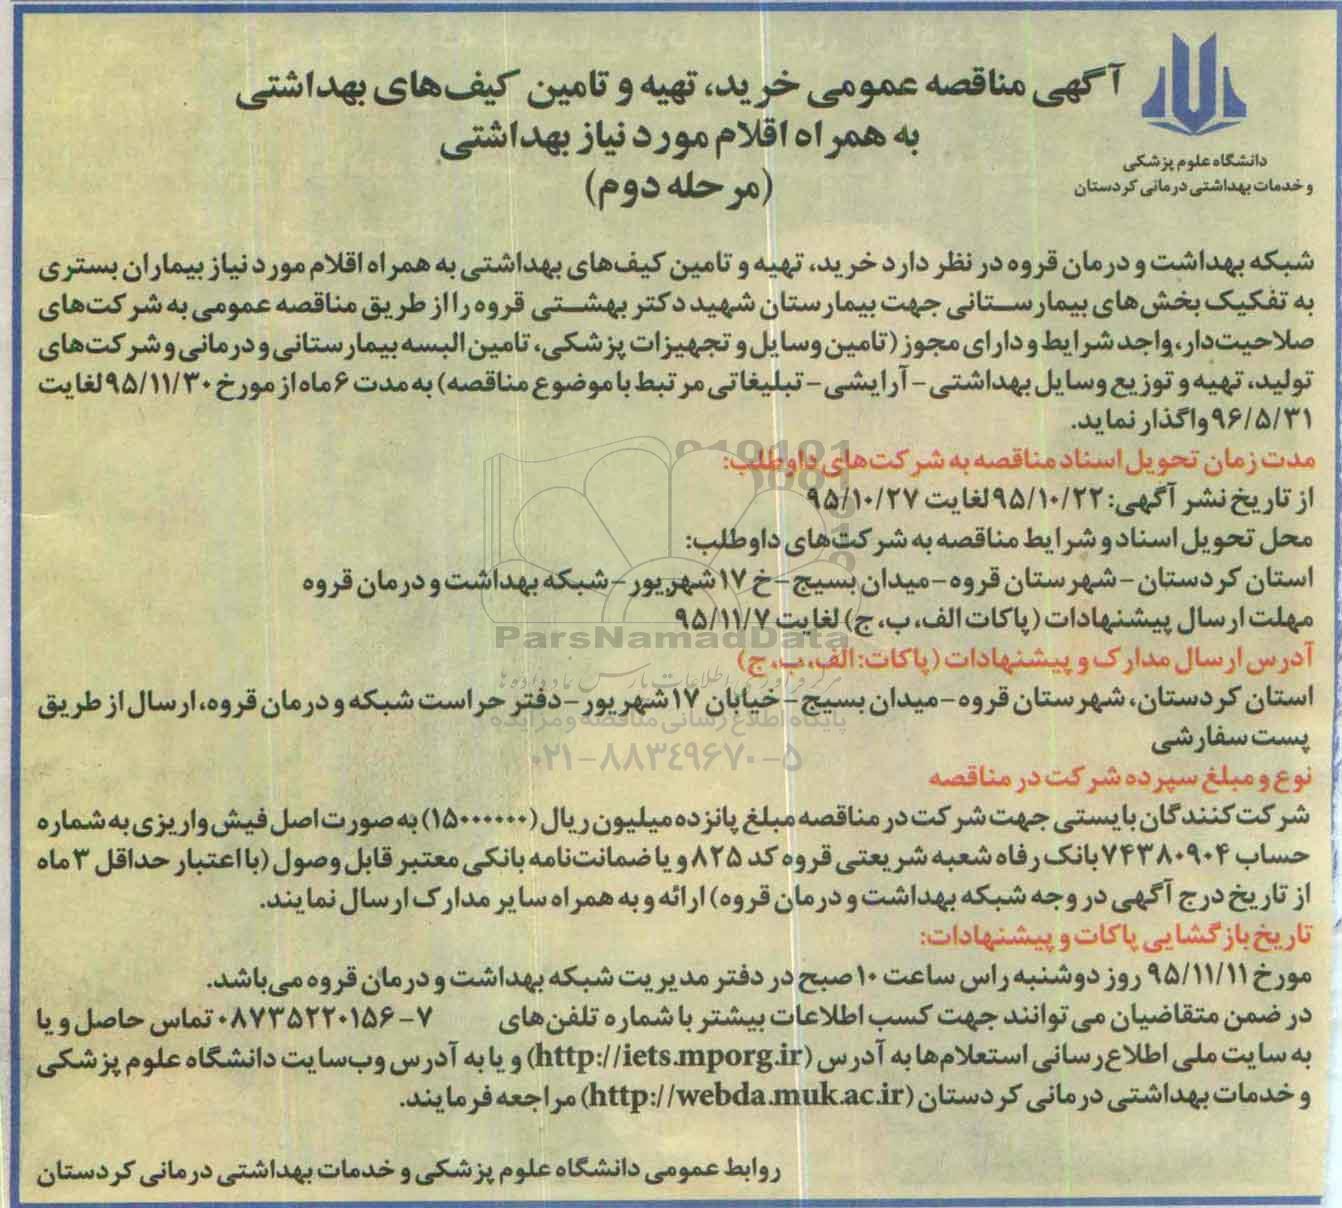 آگهی مناقصه عمومی خرید، تهیه و تامین کیف‌های بهداشتی
به همراه اقلام مورد نیاز بهداشتی
(مرحله دوم)
دانشگاه علوم پزشکی
و خدمات بهداشتی درمانی کردستان
شبکه بهداشت و درمان قروه در نظر دارد خرید، تهیه و تامین کیف‌های بهداشتی به همراه اقلام مورد نیاز بیماران بستری
به تفکیک بخش‌های بیمارستانی جهت بیمارستان شهید دکتر بهشتی قروه را از طریق مناقصه عمومی به شرکت‌های
صلاحیت‌دار، واجد شرایط و دارای مجوز (تامین وسایل و تجهیزات پزشکی، تامین البسه بیمارستانی و درمانی و شرکت‌های
تولید، تهیه و توزیع وسایل بهداشتی - آرایشی - تبلیغاتی مرتبط با موضوع مناقصه) به مدت ۶ ماه از مورخ ۹۵/۱۱/۳۰ لغایت
۹۶/۵/۳۱ واگذار نماید.
مدت زمان تحویل اسناد مناقصه به شرکت‌های داوطلب:
از تاریخ نشر آگهی: ۹۵/۱۰/۲۲ لغایت ۹۵/۱۰/۲۷
محل تحویل اسناد و شرایط مناقصه به شرکت‌های داوطلب:
استان کردستان - شهرستان قروه - میدان بسیج - خ ۱۷ شهریور - شبکه بهداشت و درمان قروه
مهلت ارسال پیشنهادات (پاکات الف، ب، ج) لغایت ۹۵/۱۱/۷
ParsNamadData
آدرس ارسال مدارک و پیشنهادات (پاکات: الف، ب، ج)
مرکز فرآوری اطلاعات پارس نماد داده ها
استان کردستان، شهرستان قروه - میدان بسیج - خیابان ۱۷ شهریور - دفتر حراست شبکه و درمان قروه، ارسال از طریق
پایگاه اطلاع رسانی مناقصه و مزایده
پست سفارشی
۰۲۱-۸۸۳۴۹۶۷۰-۵
نوع و مبلغ سپرده شرکت در مناقصه
شرکت‌کنندگان بایستی جهت شرکت در مناقصه مبلغ پانزده میلیون ریال (۱۵۰۰۰۰۰۰) به صورت اصل فیش واریزی به شماره
حساب ۷۴۳۸۰۹۰۴ بانک رفاه شعبه شریعتی قروه کد ۸۲۵ و یا ضمانت‌نامه بانکی معتبر قابل وصول (با اعتبار حداقل ۳ ماه
از تاریخ درج آگهی در وجه شبکه بهداشت و درمان قروه) ارائه و به همراه سایر مدارک ارسال نمایند.
تاریخ بازگشایی پاکات و پیشنهادات:
مورخ ۹۵/۱۱/۱۱ روز دوشنبه راس ساعت ۱۰ صبح در دفتر مدیریت شبکه بهداشت و درمان قروه می‌باشد.
در ضمن متقاضیان می توانند جهت کسب اطلاعات بیشتر با شماره تلفن‌های ۷-۰۸۷۳۵۲۲۰۱۵۶ تماس حاصل و یا
به سایت ملی اطلاع‌رسانی استعلام‌ها به آدرس (http://iets.mporg.ir) و یا به آدرس وب‌سایت دانشگاه علوم پزشکی
و خدمات بهداشتی درمانی کردستان (http://webda.muk.ac.ir) مراجعه فرمایند.
روابط عمومی دانشگاه علوم پزشکی و خدمات بهداشتی درمانی کردستان